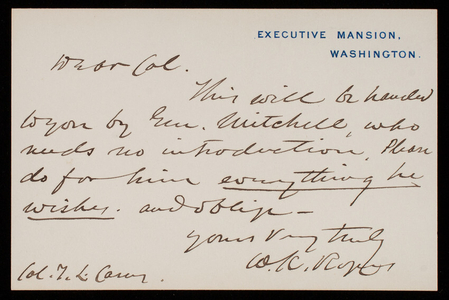 EXECUTIVE MANSION,
WASHINGTON.
Dear Col.
This will be handed
to you by Gen. Mitchell, who
needs no introduction. Please
do for him everything he
wishes. and oblige —
yours very truly
W. K. Rogers
Col. T. L. Casey